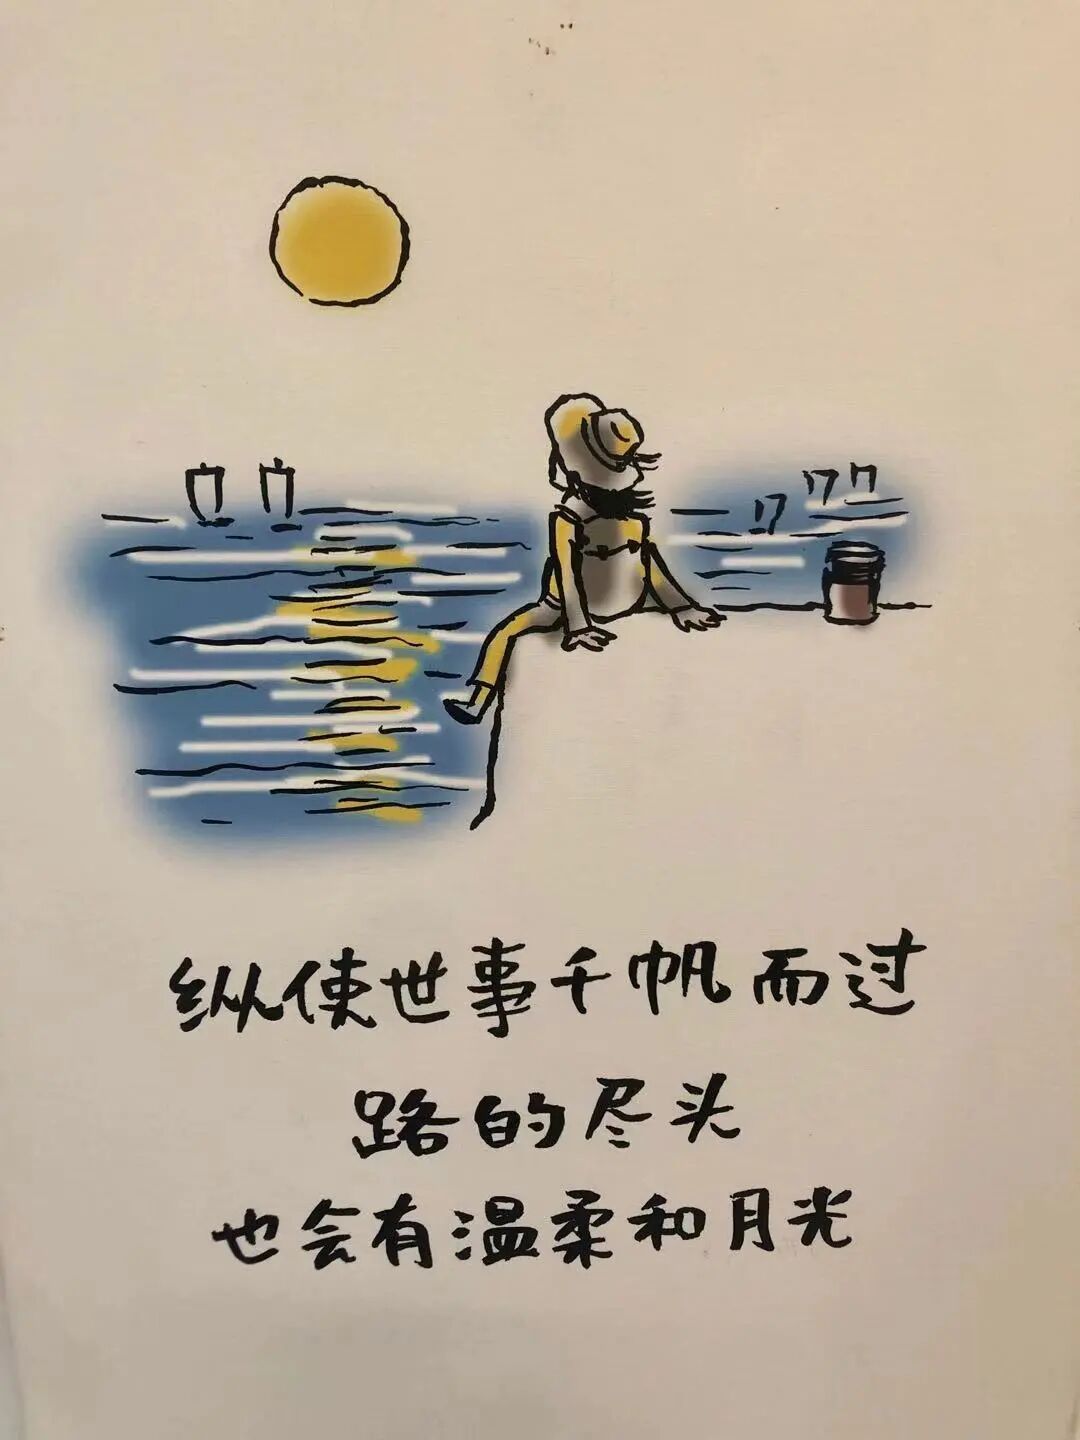 纵使世事千帆而过
路的尽头
也会有温柔和月光